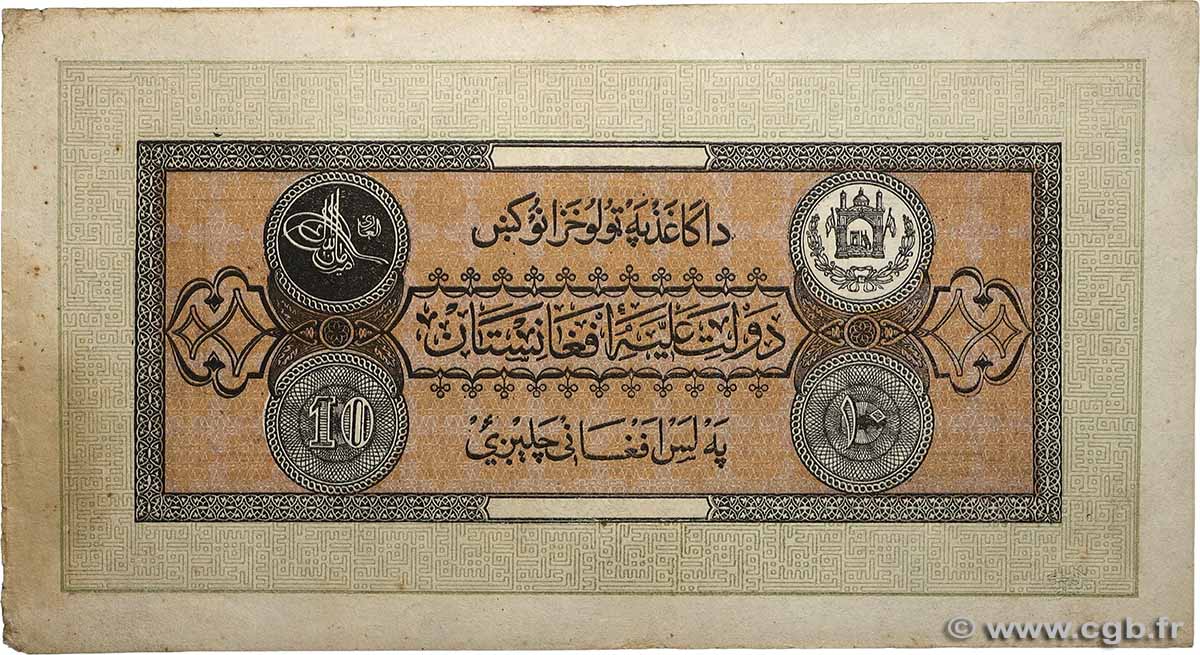 دا کاغذ په ټولو خزانو کښ
دولت عليۀ افغانستان
په لس افغانی چلیږی
امان الله
10
۱۰
© www.cgb.fr